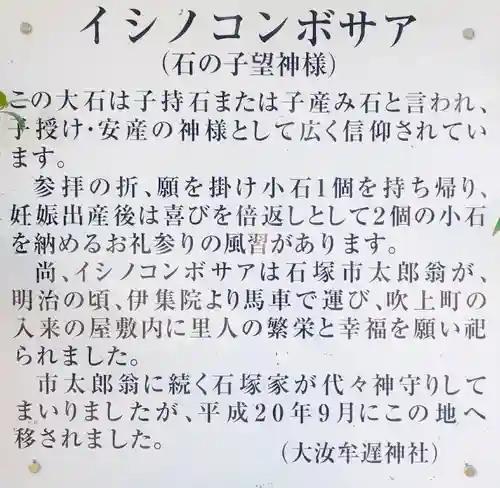 イシノコンボサア
(石の子望神様)
この大石は子持石または子産み石と言われ、
子授け・安産の神様として広く信仰されてい
ます。
参拝の折、願を掛け小石1個を持ち帰り、
妊娠出産後は喜びを倍返しとして2個の小石
を納めるお礼参りの風習があります。
尚、イシノコンボサアは石塚市太郎翁が、
明治の頃、伊集院より馬車で運び、吹上町の
入来の屋敷内に里人の繁栄と幸福を願い祀
られました。
市太郎翁に続く石塚家が代々神守りして
まいりましたが、平成20年9月にこの地へ
移されました。
(大汝牟遅神社)